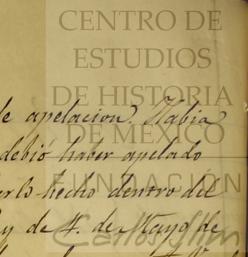 CENTRO DE
ESTUDIOS
DE HISTORIA
DE MEXICO
FUNDACIÓN
de apelacion. Habia
debió haber apelado
lo hecho dentro del
y de 4. de Mayo de